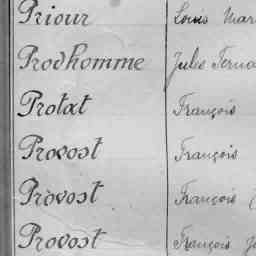 Priour Louis Mar
Prodhomme Jules Ferna
Protat François
Provost François
Provost François
Provost François Ju